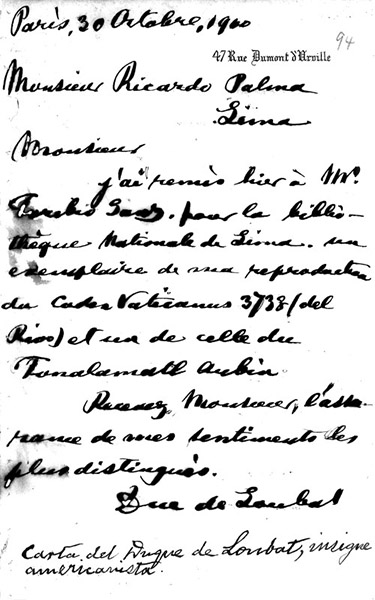 Paris, 30 Octobre, 1900
94
47 Rue Dumont d'Urville
Monsieur Ricardo Palma
Lima
Monsieur
j'ai remis hier à Mr.
Toribio Sanz. pour la biblio-
thèque Nationale de Lima. un
exemplaire de ma reproduction
du Codex Vaticanus 3738 (del
Rios) et un de celle du
Tonalamatl Aubin
Recevez Monsieur, l'assu-
rance de mes sentiments les
plus distingués.
Duc de Loubat
Carta del Duque de Loubat, insigne
americanista.